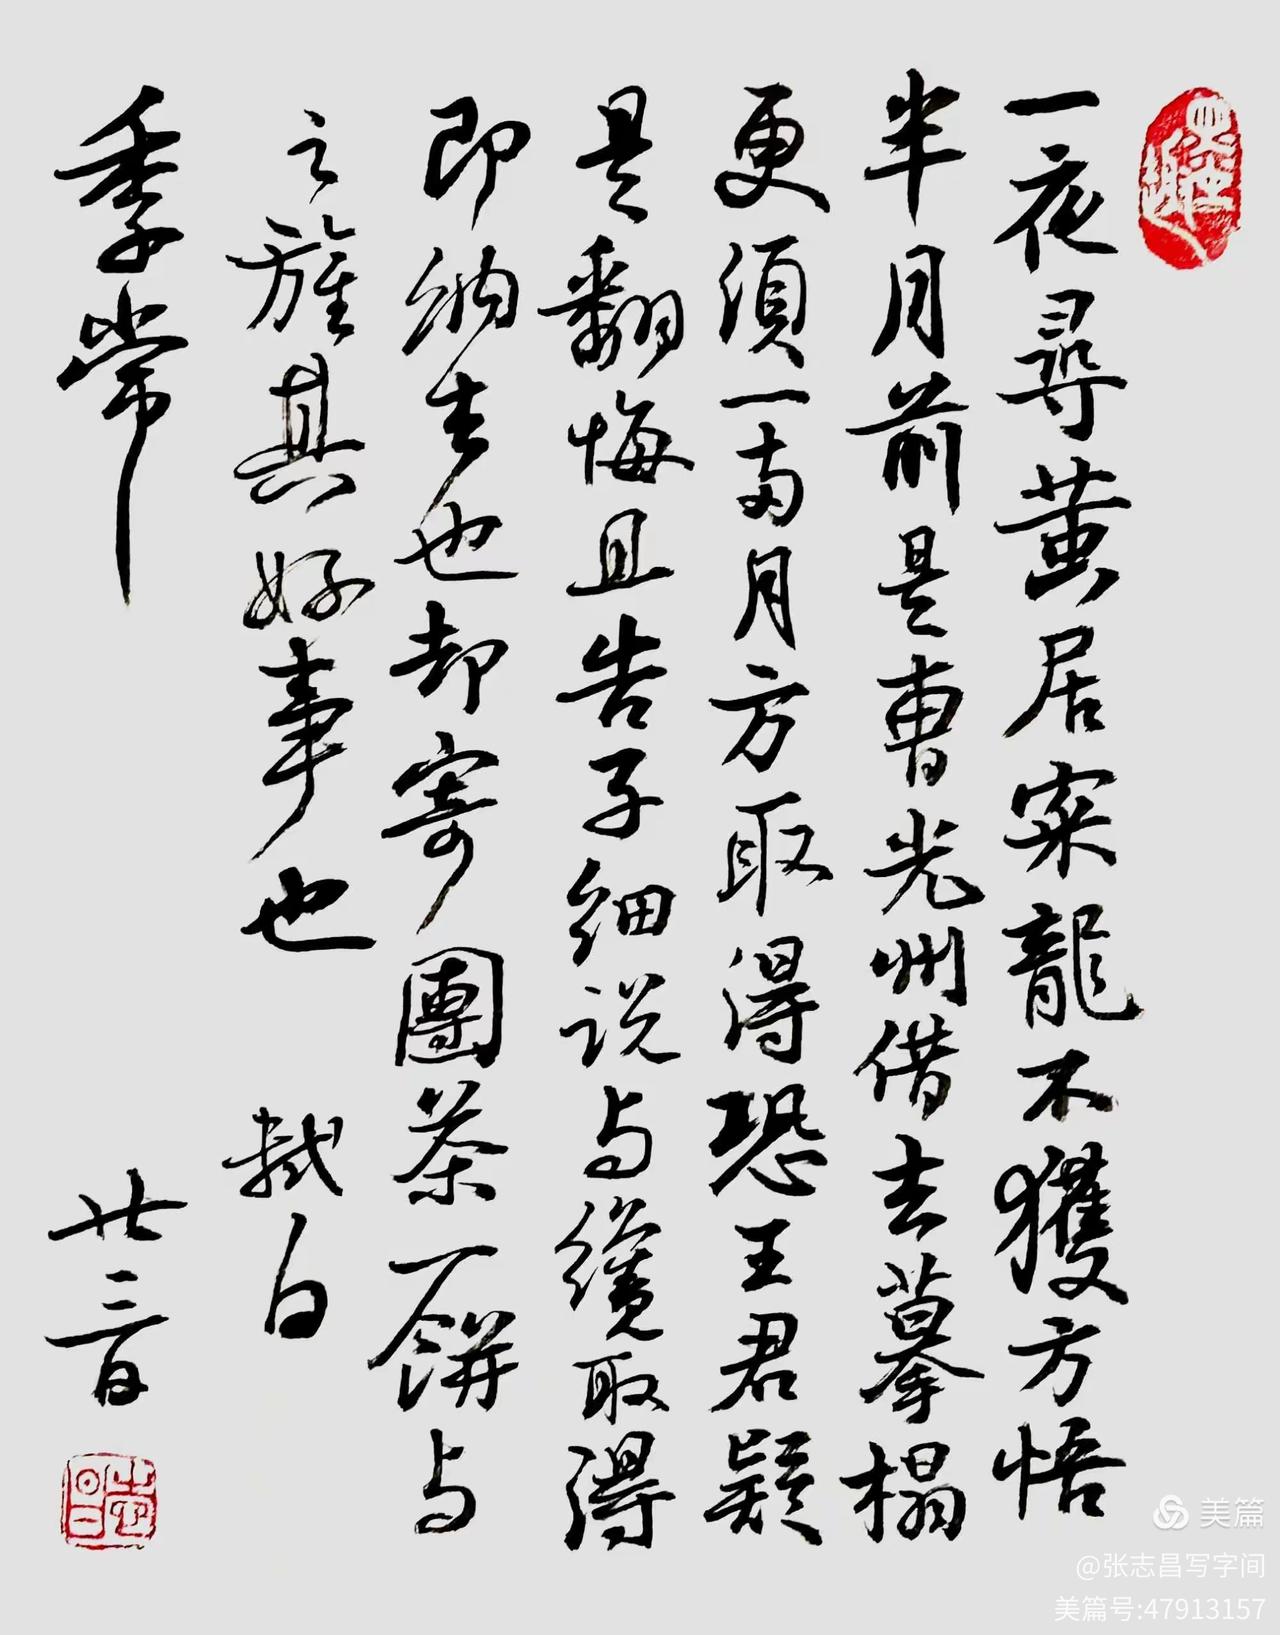 一夜尋黃居寀龍不獲方悟
半月前是曹光州借去摹搨
更須一兩月方取得恐王君疑
是翻悔且告子細說与纔取得
即納去也却寄團茶一餅与
之旌其好事也 軾白
季常 廿三日
志昌
美篇
@张志昌写字间
美篇号:47913157